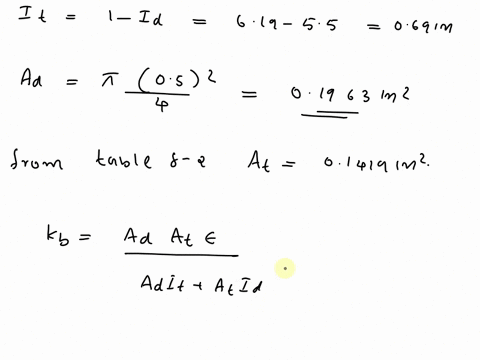 It = 1 - Id = 6.19 - 5.5 = 0.69 in
Ad = π (0.5)² / 4 = 0.1963 in²
from table 8-2 At = 0.1419 in².
kb = Ad At E / AdIt + AtId